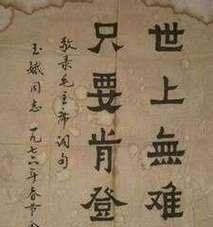 世上無难
只要肯登
敬录毛主席词句
玉 同志 一九七六年春节